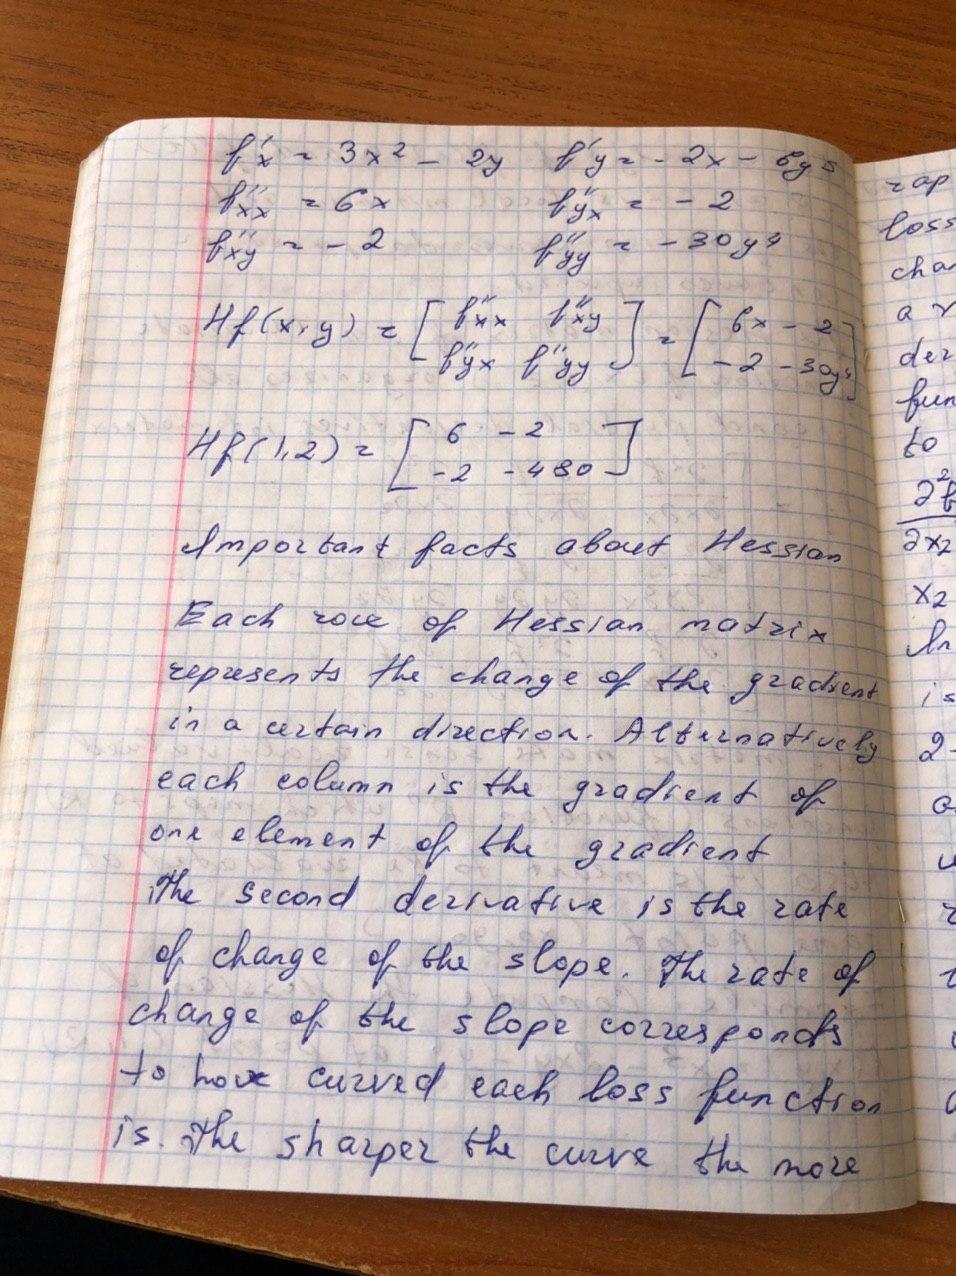 f'x = 3x² - 2y   f'y = -2x - 6y⁵
f''xx = 6x   f''yx = -2
f''xy = -2   f''yy = -30y⁴
Hf(x,y) = [ f''xx f''xy ; f''yx f''yy ] = [ 6x -2 ; -2 -30y⁴ ]
Hf(1,2) = [ 6 -2 ; -2 -480 ]
Important facts about Hessian
Each row of Hessian matrix
represents the change of the gradient
in a certain direction. Alternatively
each column is the gradient of
one element of the gradient
The second derivative is the rate
of change of the slope. The rate of
change of the slope corresponds
to how curved each loss function
is. The sharper the curve the more
rap
loss
cha
a
der
fun
to
∂²f
∂x2
x2
In
is
2-